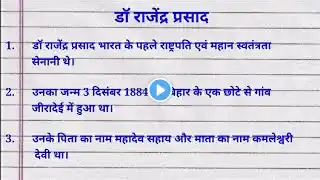 डॉ राजेंद्र प्रसाद
1. डॉ राजेंद्र प्रसाद भारत के पहले राष्ट्रपति एवं महान स्वतंत्रता
सेनानी थे।
2. उनका जन्म 3 दिसंबर 1884 हार के एक छोटे से गांव
जीरादेई में हुआ था।
3. उनके पिता का नाम महादेव सहाय और माता का नाम कमलेश्वरी
देवी था।